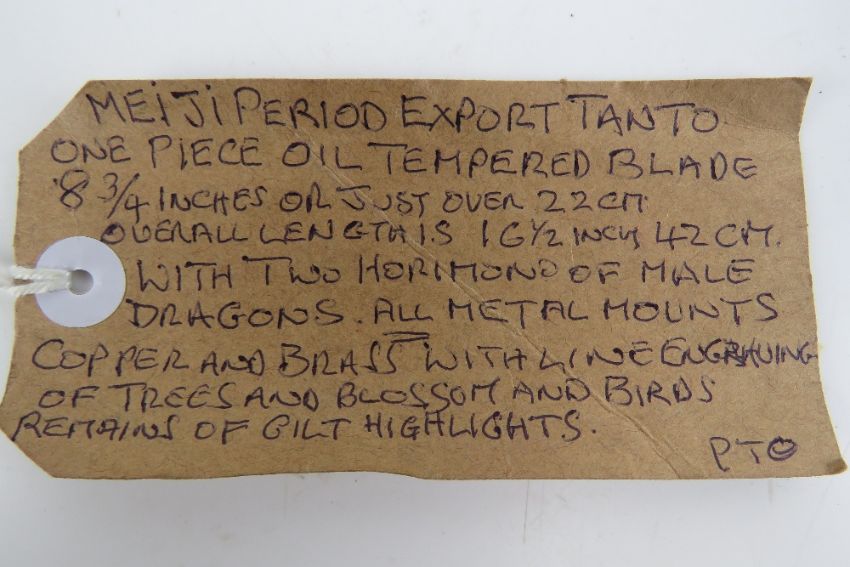 MEIJI PERIOD EXPORT TANTO
ONE PIECE OIL TEMPERED BLADE
8 3/4 INCHES OR JUST OVER 22CM
OVERALL LENGTH IS 16 1/2 INCH 42 CM.
WITH TWO HORIMONO OF MALE
DRAGONS. ALL METAL MOUNTS
COPPER AND BRASS WITH LINE ENGRAVING
OF TREES AND BLOSSOM AND BIRDS
REMAINS OF GILT HIGHLIGHTS.
PTO